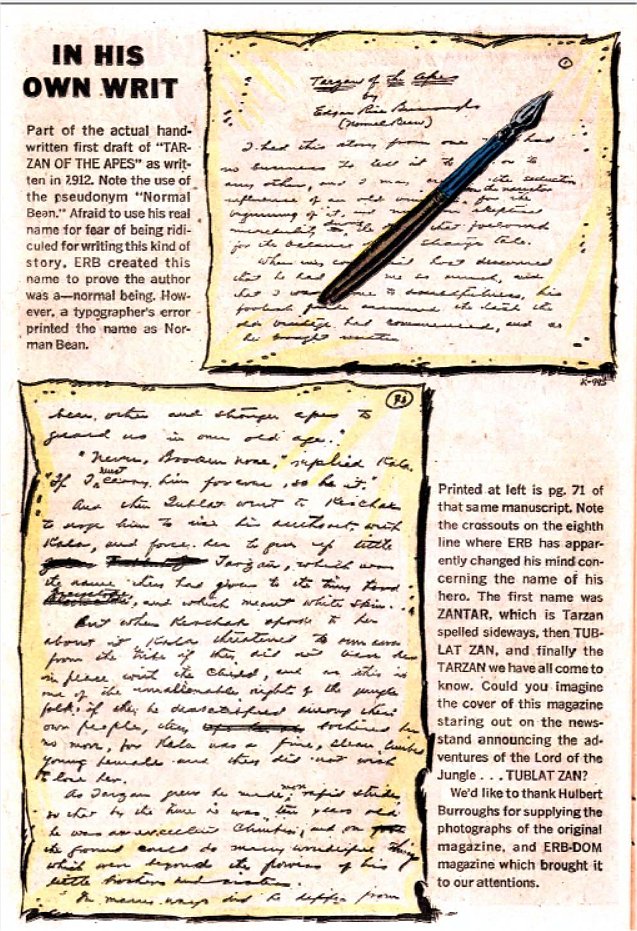 IN HIS
OWN WRIT
Part of the actual hand-
written first draft of "TAR-
ZAN OF THE APES" as writ-
ten in 1912. Note the use of
the pseudonym "Normal
Bean." Afraid to use his real
name for fear of being ridi-
culed for writing this kind of
story, ERB created this
name to prove the author
was a—normal being. How-
ever, a typographer's error
printed the name as Nor-
man Bean.
1
Tarzan of the Apes
by
Edgar Rice Burroughs
(Normal Bean)
I had this story from one had
no business to tell it to or to
any other, and I may the seductive
influence of an old for the
the narrator
beginning of it, and skeptical
incredulity the that followed
for the balance strange tale.
When my host discovered
that he had me so much, and
that I was to doubtfulness, his
foolish pride assumed the task the
old vintage had commenced, and so
he brought written
K-993
71
been, other and stronger apes to
guard us in our old age."
"Never, Broken nose," replied Kala.
"If I must carry him forever, so be it."
And then Tublat went to Kerchak
to urge him to use his authority with
Kala, and force her to give up little
Tarzan, which was
the name they had given to the tiny Lord
Greystoke, and which meant white skin.
But when Kerchak spoke to her
about it Kala threatened to run away
from the tribe if they did not leave her
in peace with the child, and as this is
one of the unalienable rights of the jungle
folk if they be dissatisfied among their
own people, they bothered her
no more, for Kala was a fine, clean limbed
young female and they did not wish
to lose her.
As Tarzan grew he made more rapid strides
so that by the time he was ten years old
he was an excellent climber, and on
the ground could do many wonderful things
which were beyond the powers of his
little brothers and sisters.
In many ways did he differ from
Printed at left is pg. 71 of
that same manuscript. Note
the crossouts on the eighth
line where ERB has appar-
ently changed his mind con-
cerning the name of his
hero. The first name was
ZANTAR, which is Tarzan
spelled sideways, then TUB-
LAT ZAN, and finally the
TARZAN we have all come to
know. Could you imagine
the cover of this magazine
staring out on the news-
stand announcing the ad-
ventures of the Lord of the
Jungle . . . TUBLAT ZAN?
We'd like to thank Hulbert
Burroughs for supplying the
photographs of the original
magazine, and ERB-DOM
magazine which brought it
to our attentions.